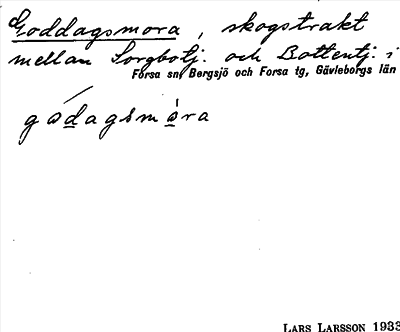 Goddagsmora, skogstrakt
mellan Sorgbotj. och Bottentj. i
Forsa sn, Bergsjö och Forsa tg, Gävleborgs län
godagsmora
LARS LARSSON 1933